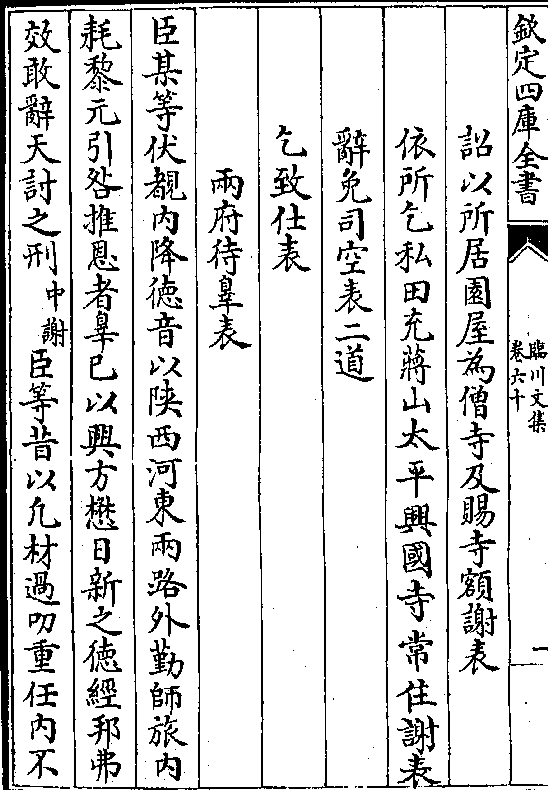 欽定四庫全書
臨川文集
卷六十
一
詔以所居園屋為僧寺及賜寺額謝表
依所乞私田充蔣山太平興國寺常住謝表
辭免司空表二道
乞致仕表
兩府待辠表
臣某等伏覩内降徳音以陜西河東兩路外勤師旅内
耗黎元引咎推恩者辠已以興方懋日新之徳經邦弗
效敢辭天討之刑中謝臣等昔以凡材過叨重任内不